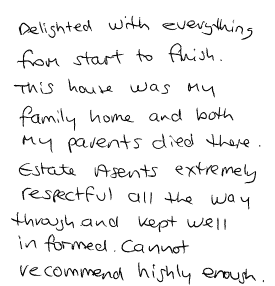 Delighted with everything
from start to finish.
This house was my
family home and both
my parents died there.
Estate Agents extremely
respectful all the way
through and kept well
informed. Cannot
recommend highly enough.